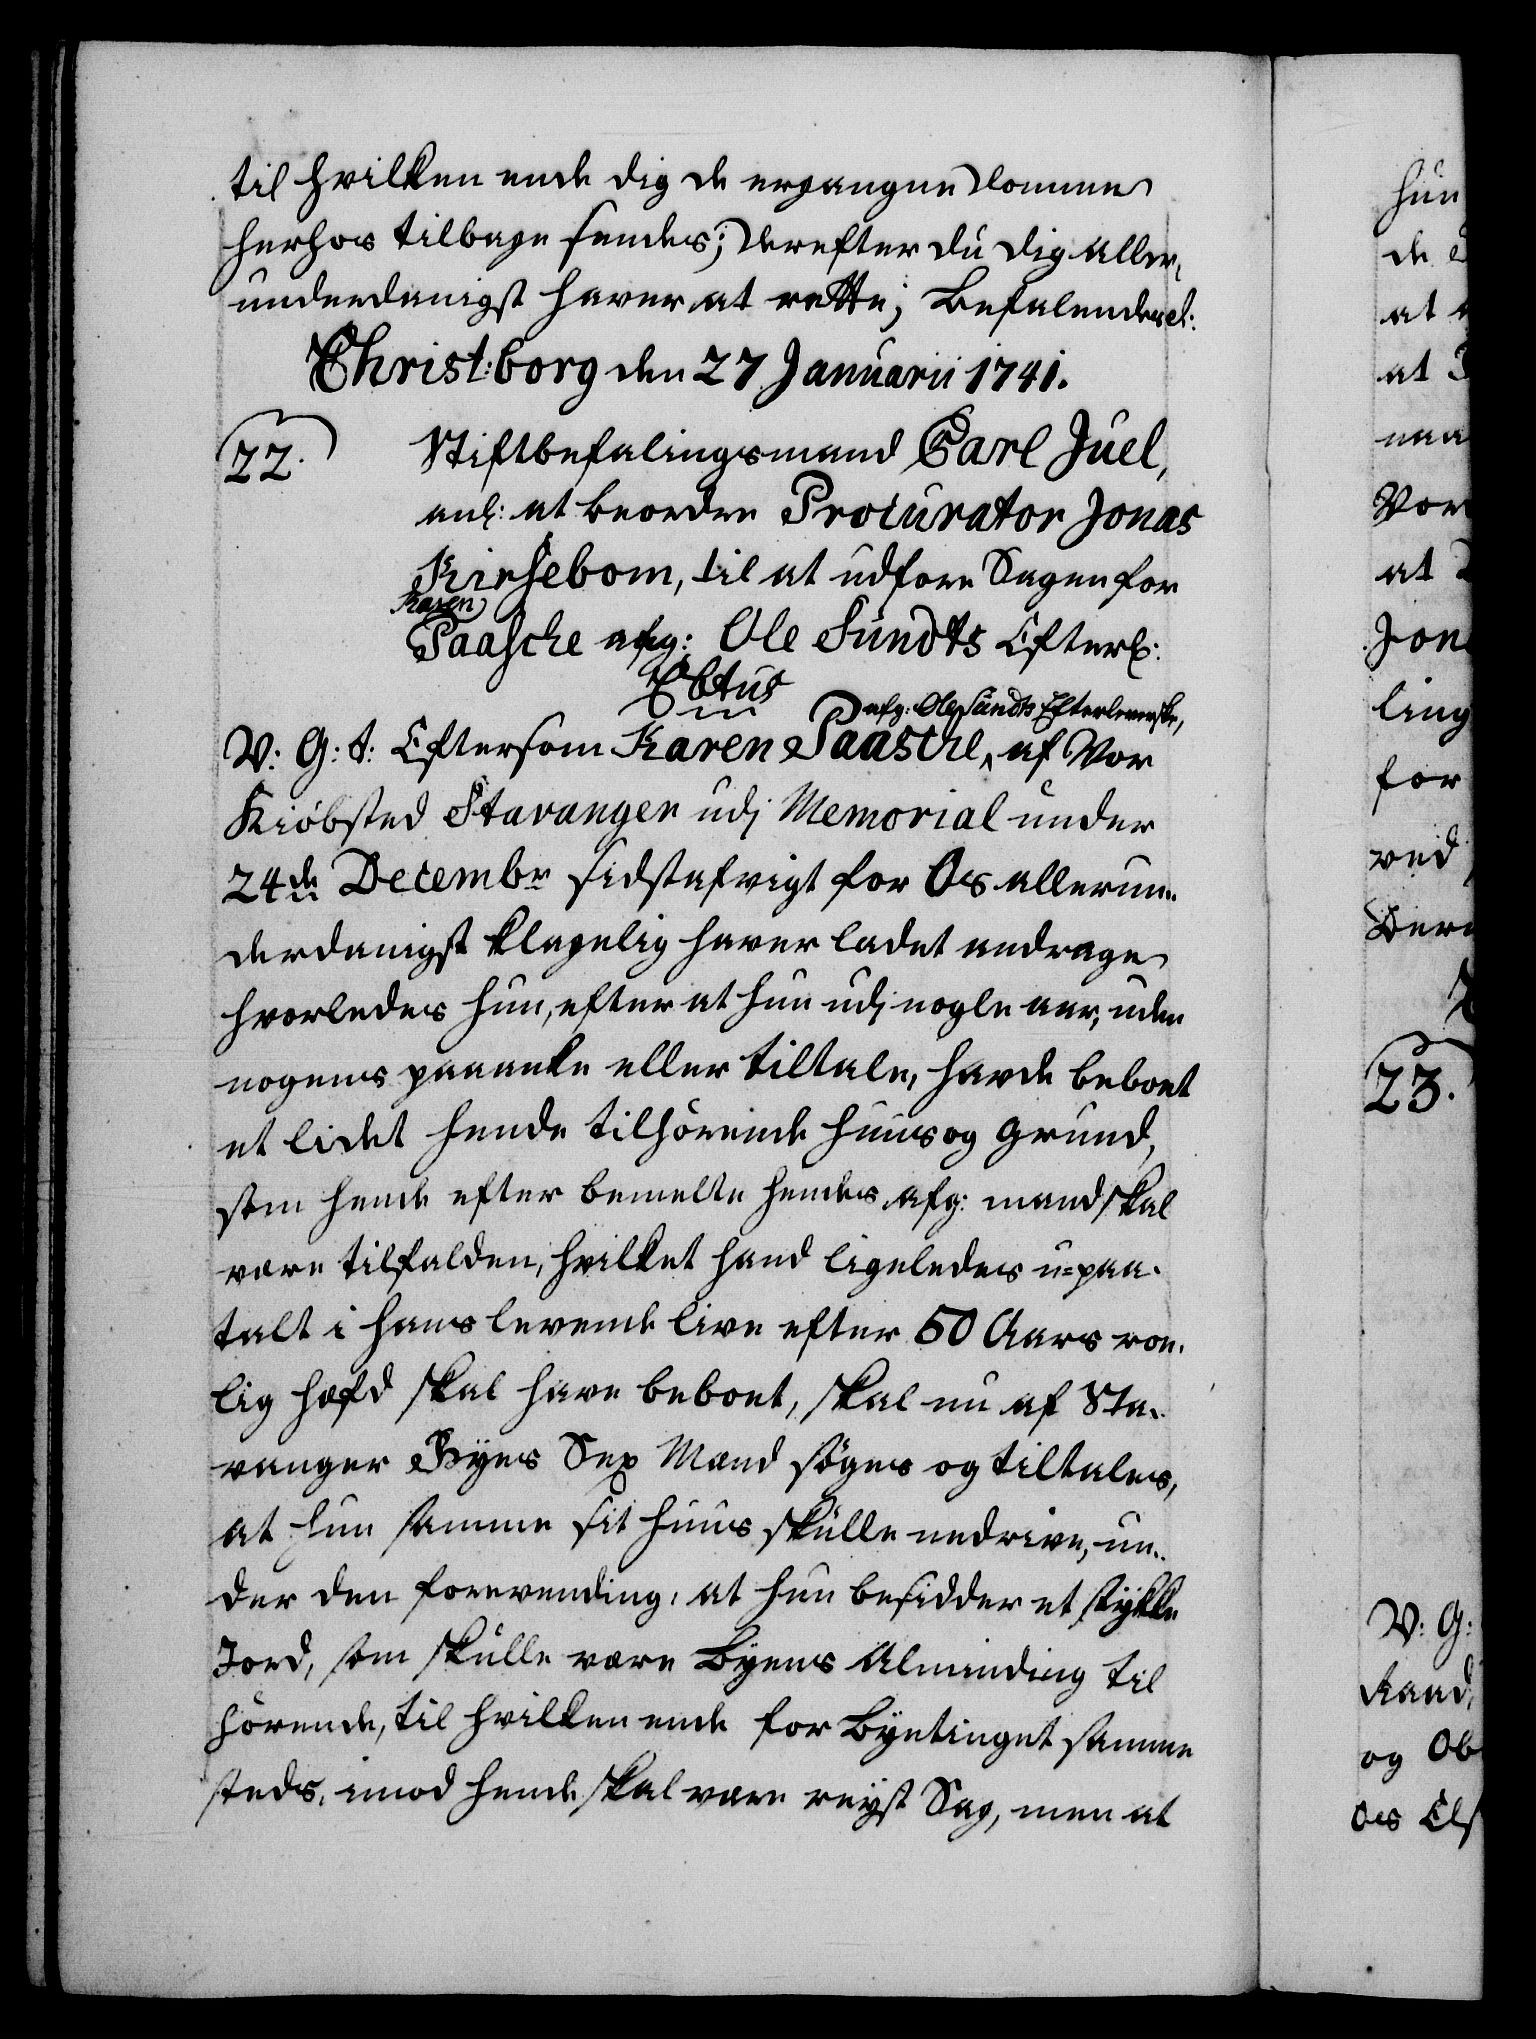 til hvilken ende dig de ergangne Domme
herhos tilbage sendes; Derefter du dig aller,
underdanigst haver at rette; Befalendes etc:
Christ:borg den 27 Januarii 1741.
22. Stiftbefalingsmand Carl Juel,
anl: at beordre Procurator Jonas
Kirsebom, til at udføre Sagen for
Karen
Paasche afg: Ole Sundts Efterl:
Christianus Sextus
afg: Ole Sundts Efterleverske,
V: G: t: Eftersom Karen Paasche, af Vor
Kiöbsted Stavanger udj Memorial under
24de Decembr sidstafvigt for Os allerun-
derdanigst klagelig haver ladet andrage
hvorledes hun, efter at hun udj nogle aar, uden
nogens paaanke eller tiltale, havde beboet
et lidet hende tilhörende huus og grund,
som hende efter bemelte hendes afg: mand skal
være tilfalden, hvilket hand ligeledes u=paa-
talt i hans levende live efter 50 Aars roe-
lig hæfd skal have beboet, skal nu af Sta-
vanger Byes Sex Mænd söges og tiltales,
at hun samme sit huus skulle nedrive, un-
der den forevending, at hun besidder et stykke
Jord, som skulle være Byens Alminding til
hörende, til hvilken ende for Byetinget samme
steds, imod hende skal være reyst Sag, men at
hun
de
at
at
naa
Vor
at
Jon
ling
for
ved
Der
23.
V: G:
Raad,
og Ob
Os